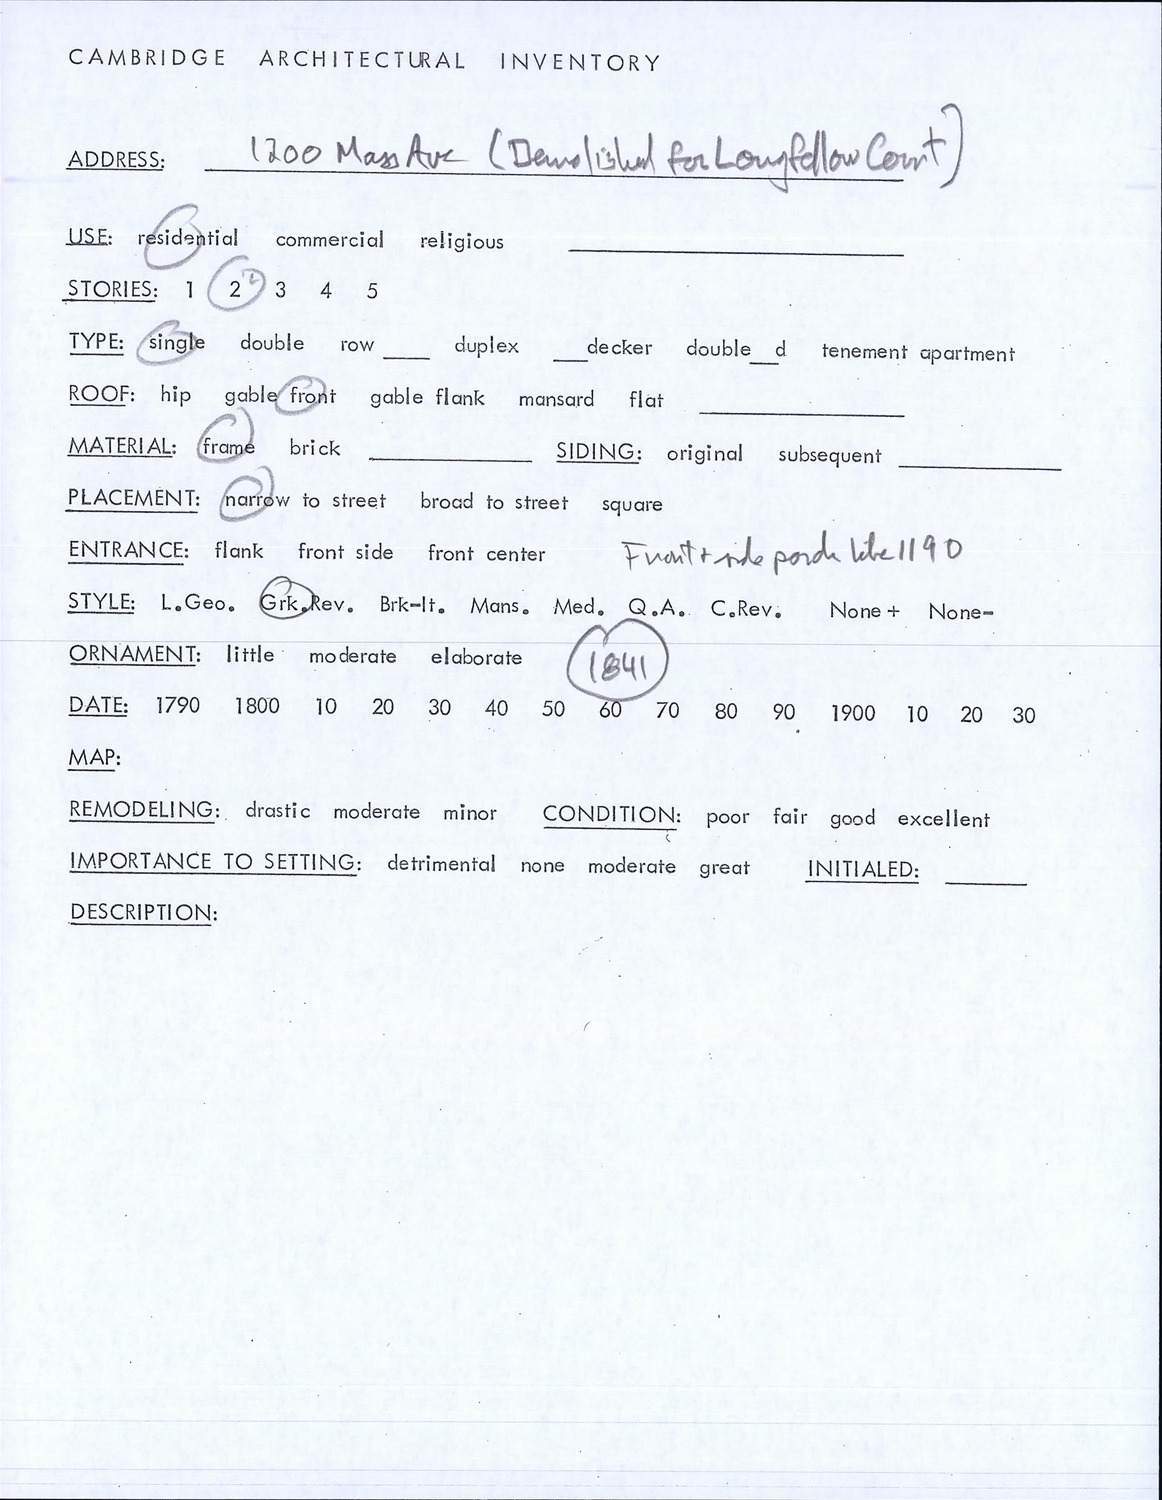 CAMBRIDGE ARCHITECTURAL INVENTORY
ADDRESS: 1200 Mass Ave (Demolished for Longfellow Court)
USE: residential commercial religious
STORIES: 1 2 ½ 3 4 5
TYPE: single double row ____ duplex ___decker double__d tenement apartment
ROOF: hip gable front gable flank mansard flat
MATERIAL: frame brick ____ SIDING: original subsequent ____
PLACEMENT: narrow to street broad to street square
ENTRANCE: flank front side front center Front + side porch like 1190
STYLE: L.Geo. Grk.Rev. Brk-It. Mans. Med. Q.A. C.Rev. None + None-
ORNAMENT: little moderate elaborate 1841
DATE: 1790 1800 10 20 30 40 50 60 70 80 90 1900 10 20 30
MAP:
REMODELING: drastic moderate minor CONDITION: poor fair good excellent
IMPORTANCE TO SETTING: detrimental none moderate great INITIALED: ____
DESCRIPTION: